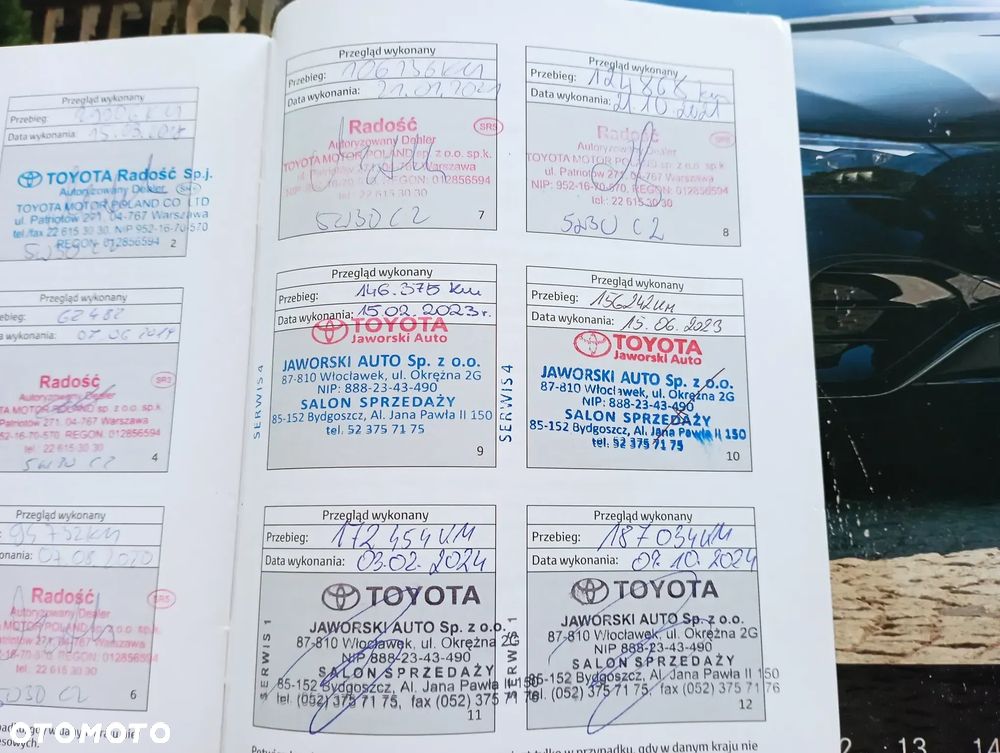 Przegląd wykonany
Przebieg:
Data wykonania: 15.03.
TOYOTA Radość Sp.j.
Autoryzowany Dealer SR5
TOYOTA MOTOR POLAND CO LTD
ul. Patriotów 271, 04-767 Warszawa
tel./fax 22 615 30 30, NIP 952-16-70-570
REGON: 012856594
5W30 C2
2
Przegląd wykonany
ebieg: 62482
a wykonania: 07.06.2019
Radość SR3
Autoryzowany Dealer
TA MOTOR POLAND sp. z o.o. sp.k.
Patriotów 271, 04-767 Warszawa
52-16-70-570, REGON: 012856594
tel.: 22 615 30 30
5W30 C2
4
Przegląd wykonany
: 95732KM
onania: 07.08.2020
Radość SR5
Autoryzowany Dealer
MOTOR POLAND sp. z o.o. sp.k.
Patriotów 271, 04-767 Warszawa
REGON: 012856594
tel.: 22 615 30 30
5W30 C2
6
Przegląd wykonany
Przebieg: 106736KM
Data wykonania: 21.01.2021
Radość SR5
Autoryzowany Dealer
TOYOTA MOTOR POLAND sp. z o.o. sp.k.
271, 04-767 Warszawa
REGON: 012856594
615 30 30
5W30 C2
7
Przegląd wykonany
Przebieg: 124868 km
Data wykonania: 21.10.2021
Radość
Autoryzowany Dealer
TOYOTA MOTOR POLAND sp. z o.o. sp.k.
ul. Patriotów 271, 04-767 Warszawa
NIP: 952-16-70-570, REGON: 012856594
tel.: 22 615 30 30
5W30 C2
8
Przegląd wykonany
Przebieg: 146.375 km
Data wykonania: 15.02.2023r.
TOYOTA
Jaworski Auto
JAWORSKI AUTO Sp. z o.o.
87-810 Włocławek, ul. Okrężna 2G
NIP: 888-23-43-490
SALON SPRZEDAŻY
85-152 Bydgoszcz, Al. Jana Pawła II 150
tel. 52 375 71 75
SERWIS 4
9
Przegląd wykonany
Przebieg: 156242KM
Data wykonania: 15.06.2023
TOYOTA
Jaworski Auto
JAWORSKI AUTO Sp. z o.o.
87-810 Włocławek, ul. Okrężna 2G
NIP: 888-23-43-490
SALON SPRZEDAŻY
85-152 Bydgoszcz, Al. Jana Pawła II 150
tel. 52 375 71 75
SERWIS 4
10
Przegląd wykonany
Przebieg: 172 454KM
Data wykonania: 03.02.2024
TOYOTA
JAWORSKI AUTO Sp. z o.o.
87-810 Włocławek, ul. Okrężna 2G
NIP 888-23-43-490
SALON SPRZEDAŻY
85-152 Bydgoszcz, Al. Jana Pawła II 150
tel. (052) 375 71 75, fax (052) 375 71 76
SERWIS 1
11
Przegląd wykonany
Przebieg: 187034KM
Data wykonania: 09.10.2024
TOYOTA
JAWORSKI AUTO Sp. z o.o.
87-810 Włocławek, ul. Okrężna 2G
NIP 888-23-43-490
SALON SPRZEDAŻY
85-152 Bydgoszcz, Al. Jana Pawła II 150
tel. (052) 375 71 75, fax (052) 375 71 76
SERWIS 1
12
tylko w przypadku, gdy w danym kraju nie
OTOMOTO
12 13 14